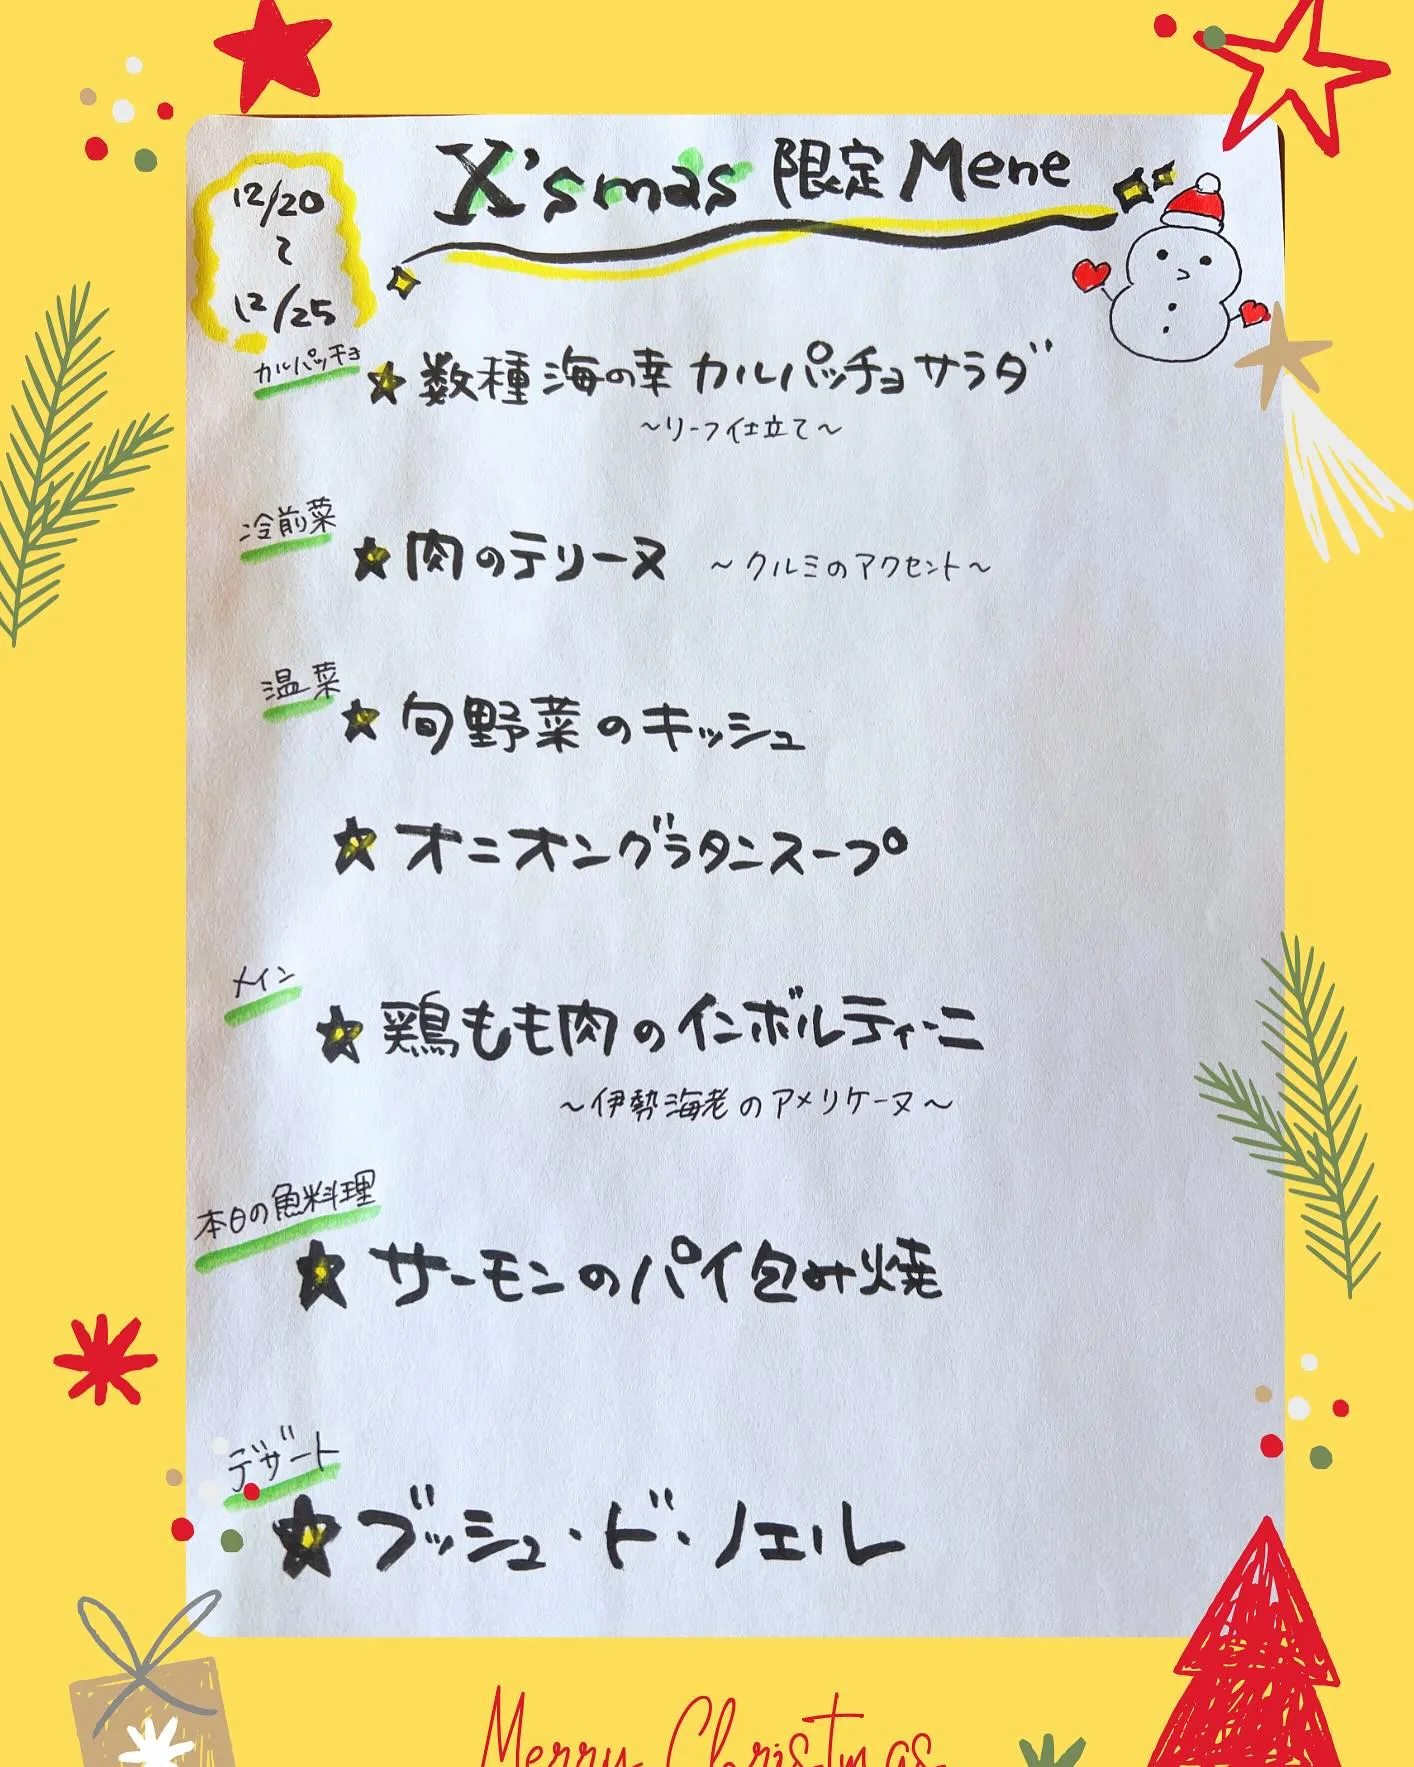 X'smas 限定 Mene
12/20
～
12/25
カルパッチョ
★数種 海の幸 カルパッチョサラダ
～リーフ仕立て～
冷前菜
★肉のテリーヌ ～クルミのアクセント～
温菜
★旬野菜のキッシュ
★オニオングラタンスープ
メイン
★鶏もも肉のインボルティーニ
～伊勢海老のアメリケーヌ～
本日の魚料理
★サーモンのパイ包み焼
デザート
★ブッシュ・ド・ノエル
Merry Christmas